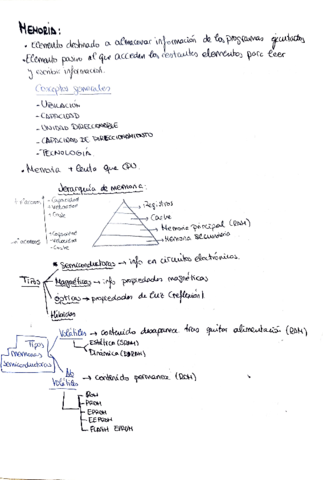 MEMORIA:
• Elemento destinado a almacenar información de los programas ejecutados
• Elemento pasivo al que acceden los restantes elementos para leer
y escribir información.
Conceptos generales
- UBICACIÓN
- CAPACIDAD
- UNIDAD DIRECCIONABLE
- CAPACIDAD DE DIRECCIONAMIENTO
- TECNOLOGÍA
• Memoria + lenta que CPU.
Jerarquía de memoria:
- Capacidad
+ Velocidad
+ Coste
Registros
Cache
Memoria principal (RAM)
Memoria secundaria
+ Capacidad
- Velocidad
- Coste
Tipos
Semiconductoras → info en circuitos electrónicos.
Magnéticas → info propiedades magnéticas
Ópticas → propiedades de luz (reflexión)
Híbridas
Tipos
memorias
semiconductoras
Volátiles → contenido desaparece tras quitar alimentación (RAM)
Estática (SRAM)
Dinámica (DRAM)
No
Volátiles → contenido permanece (ROM)
ROM
PROM
EPROM
EEPROM
FLASH EPROM